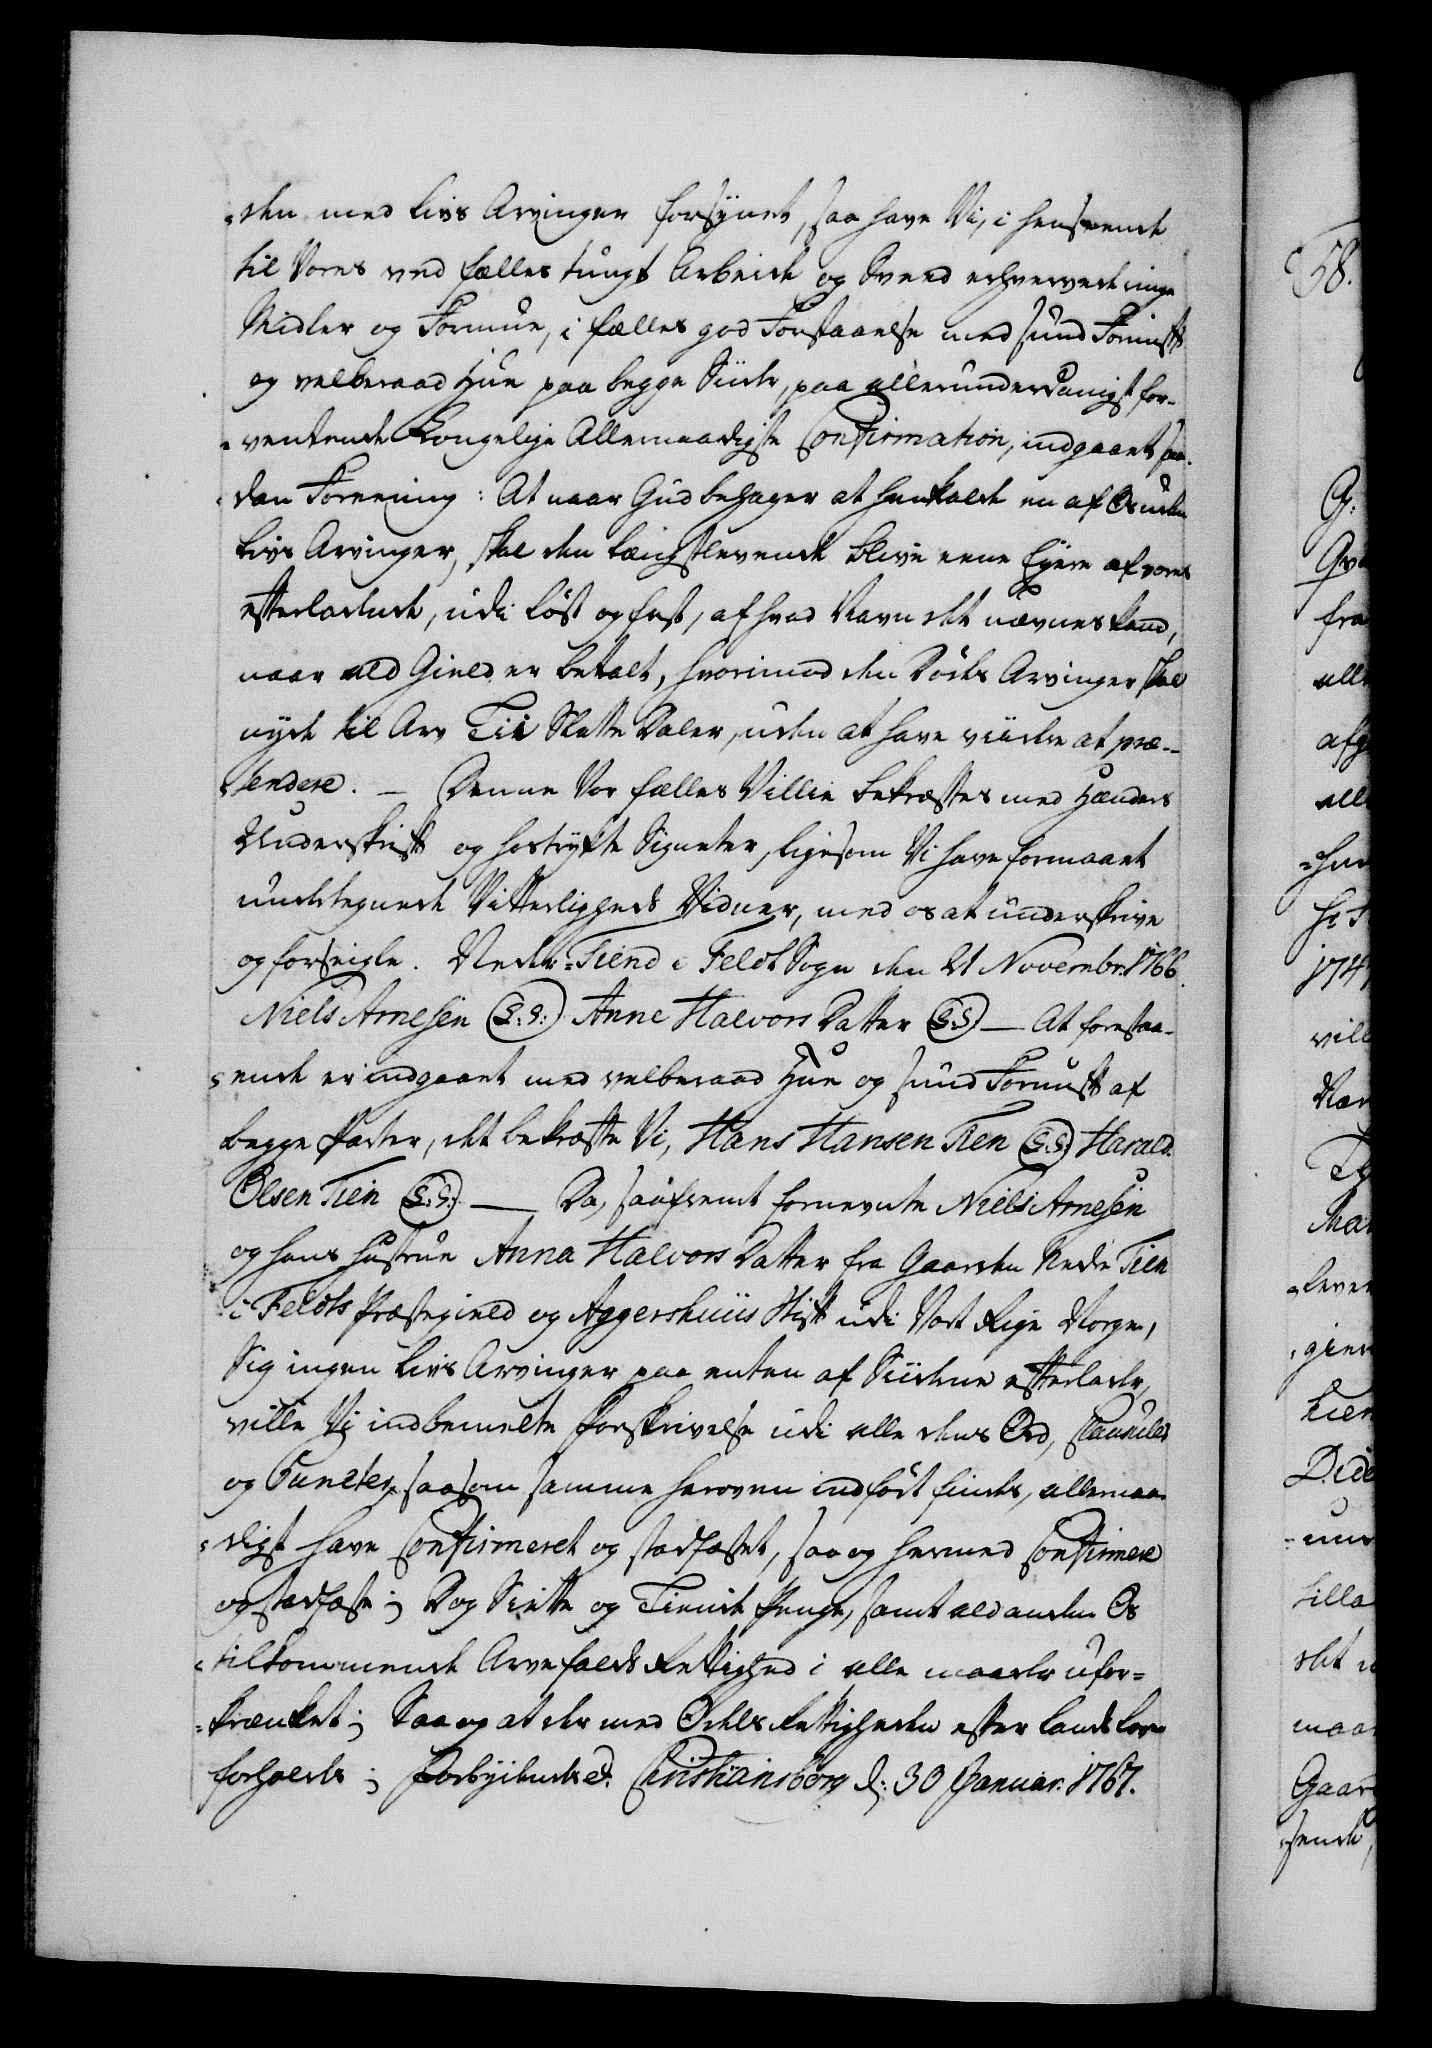 =den med Livs Arvinger forsynet, saa have Vi, i henseende
til Vores ved fælles tungt Arbeide og Sveed erhvervede ringe
Midler og Formue, i fælles god Forstaaelse med sund Fornuft
og velberaad Hue paa begge Siider, paa allerunderdanigst for-
=ventende Kongelige Allernaadigste Confirmation, indgaaet saa-
dan Forening: At naar Gud behager at henkalde en af Os uden
Livs Arvinger, skal den længstlevende blive eene Ejere af vores
efterladende, udi løst og fast, af hvad Navn det nævnes kand,
naar ald Gield er betalt, hvorimod den Dødes Arvinger skal
nyde til Arv Tii Slette Daler, uden at have viidere at præ-
tendere. — Denne Vor fælles Villie bekræftes med Hænders
Underskrift og hostrykte Signeter, ligesom Vi have formaaet
undertegnede Vitterligheds Vidner, med os at underskrive
og forseigle. Neder=Tiend i Feldt Sogn den 21 Novembr. 1766.
Niels Arnesen (L:S:) Anne Halvors Datter (L:S:) — At forestaa-
=ende er indgaaet med velberaad Hue og sund Fornuft af
begge Parter, det bekræfte Vi, Hans Hansen Tien (L:S:) Harald
Olsen Tien (L:S:) — Da, saafremt fornevnte Niels Arnesen
og hans Hustrue Anna Halvors Datter fra Gaarden Nedre Tien
i Feldts Præstegield og Aggershuus Stift udi Vort Rige Norge,
Sig ingen Livs Arvinger paa enten af Siiderne efterlader,
ville Vi indbemelte Forskrivelse udi alle dens Ord, Clausuler
og Puncter, saasom samme heroven indført findes, allernaa-
=digst have Confirmeret og stadfæstet, saa og hermed Confirmere
og stadfæste; Dog Siette og Tiende Penge, samt ald anden Os
tilkommende Arvefalds Rettighed i alle maader ufor=
=krænket; Saa og at der med Odels Rettigheden efter Landsloven
forholdes; Forbydendes &. Christiansborg d: 30 Januar. 1767.
58.
G:
fra
alle
afg
alle
1747
vill
gien
tilla
det
maa
Gaar